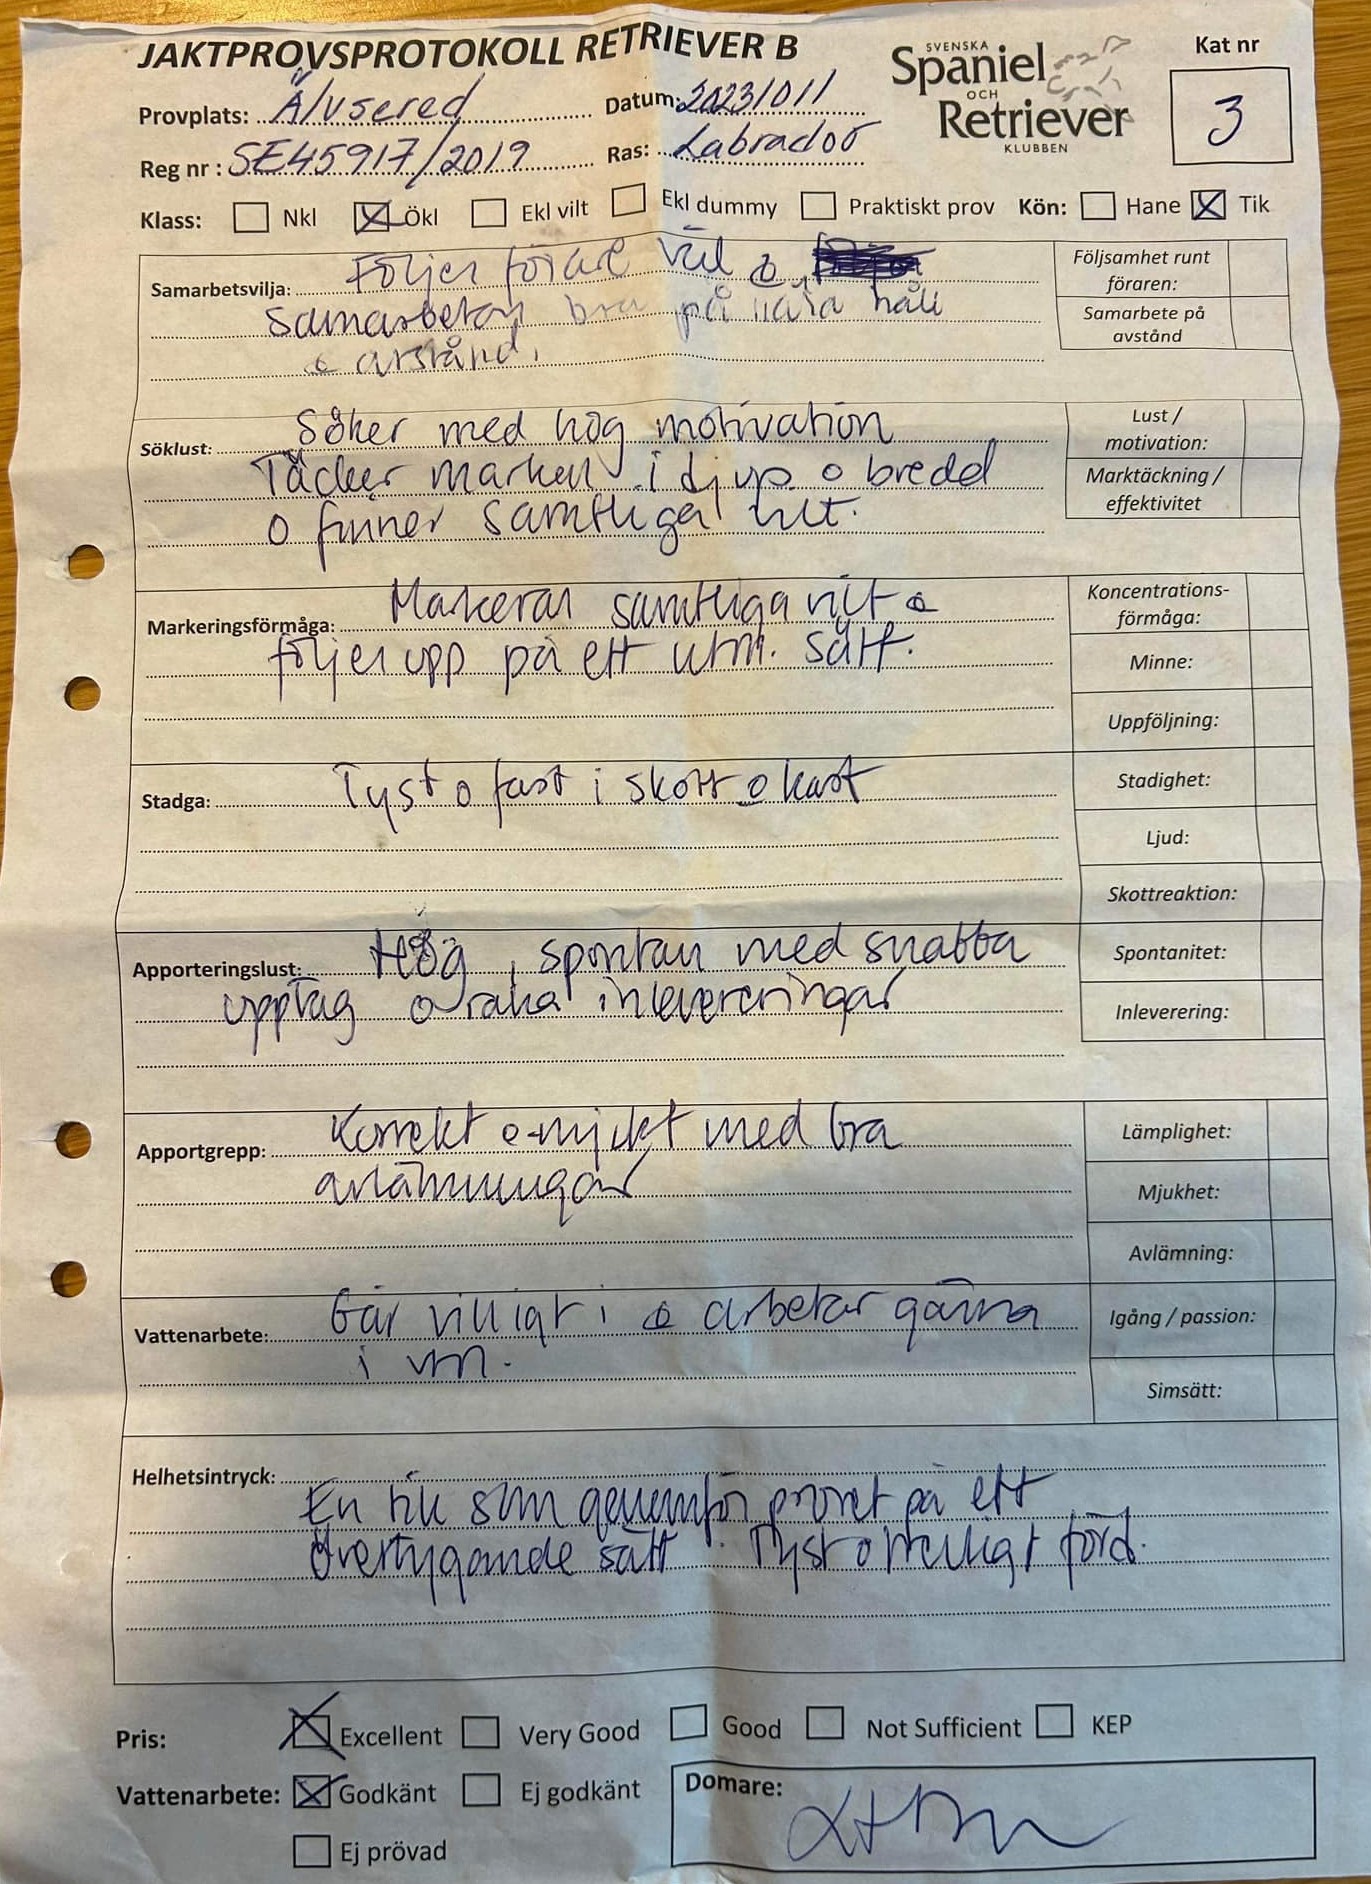 JAKTPROVSPROTOKOLL RETRIEVER B
SVENSKA
Spaniel
OCH
Retriever
KLUBBEN
Kat nr
3
Provplats: Älvsered Datum: 20231011
Reg nr : SE45917/2019 Ras: Labrador
Klass: Nkl Ökl Ekl vilt Ekl dummy Praktiskt prov Kön: Hane Tik
Samarbetsvilja: Följer förare väl o
samarbetar bra på nära håll
o avstånd.
Följsamhet runt
föraren:
Samarbete på
avstånd
Söklust: Söker med hög motivation
Täcker marken i djup o bredd
o finner samtliga vilt.
Lust /
motivation:
Marktäckning /
effektivitet
Markeringsförmåga: Markerar samtliga vilt o
följer upp på ett utm. sätt.
Koncentrations-
förmåga:
Minne:
Uppföljning:
Stadga: Tyst o fast i skott o kast
Stadighet:
Ljud:
Skottreaktion:
Apporteringslust: Hög, spontan med snabba
upptag o raka inlevereringar
Spontanitet:
Inleverering:
Apportgrepp: Korrekt o mjukt med bra
avlämningar
Lämplighet:
Mjukhet:
Avlämning:
Vattenarbete: Går villigt i o arbetar gärna
i vtn.
Igång / passion:
Simsätt:
Helhetsintryck:
En tik som genomför provet på ett
övertygande sätt. Tyst o trevligt förd.
Pris: Excellent Very Good Good Not Sufficient KEP
Vattenarbete: Godkänt Ej godkänt
Ej prövad
Domare: